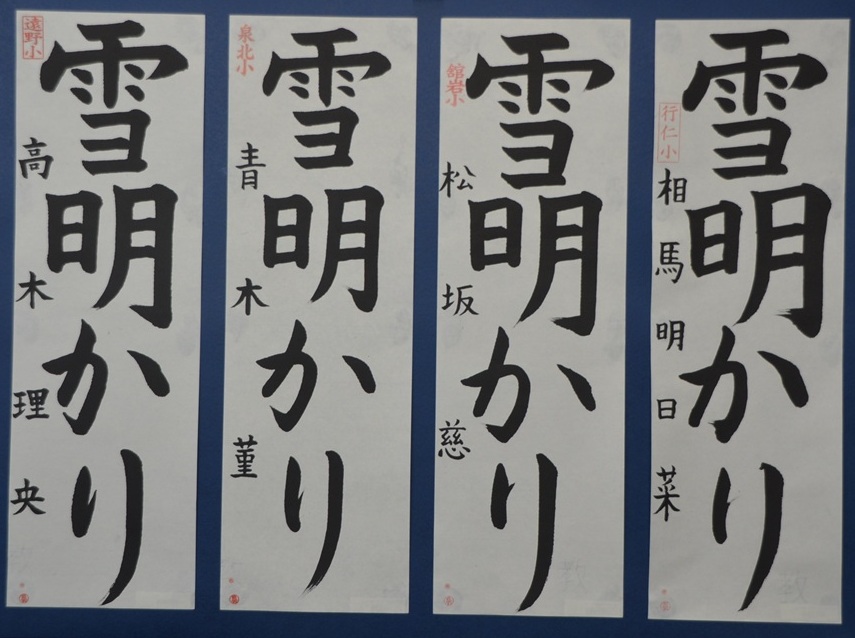 行仁小
雪明かり
相馬明日菜
舘岩小
雪明かり
松坂慈
泉北小
雪明かり
青木菫
遠野小
雪明かり
高木理央